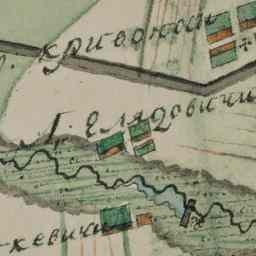 кривоноси
Д. Елядовичи
-кевичи